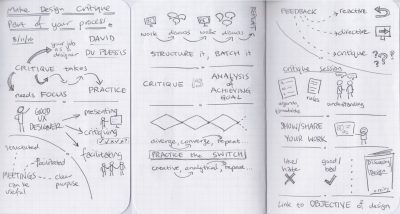 Make Design Critique
Part of your process
DAVID
DU PLESSIS
your job
as a
designer
CRITIQUE takes
needs FOCUS
PRACTICE
GOOD
UX
DESIGNER
presenting
critiquing
facilitating
structured
facilitated
MEETINGS
can be
useful
clear
purpose
REPEAT
work discuss work discuss
STRUCTURE it, BATCH it
CRITIQUE
ANALYSIS
of
ACHIEVING
GOAL
diverge, converge, repeat...
PRACTICE the SWITCH
creative, analytical, repeat...
FEEDBACK
reactive
directive
critique
critique session
agenda,
rules
understanding
SHOW/SHARE
YOUR WORK
like/
hate
good/
bad
Link to OBJECTIVE of design